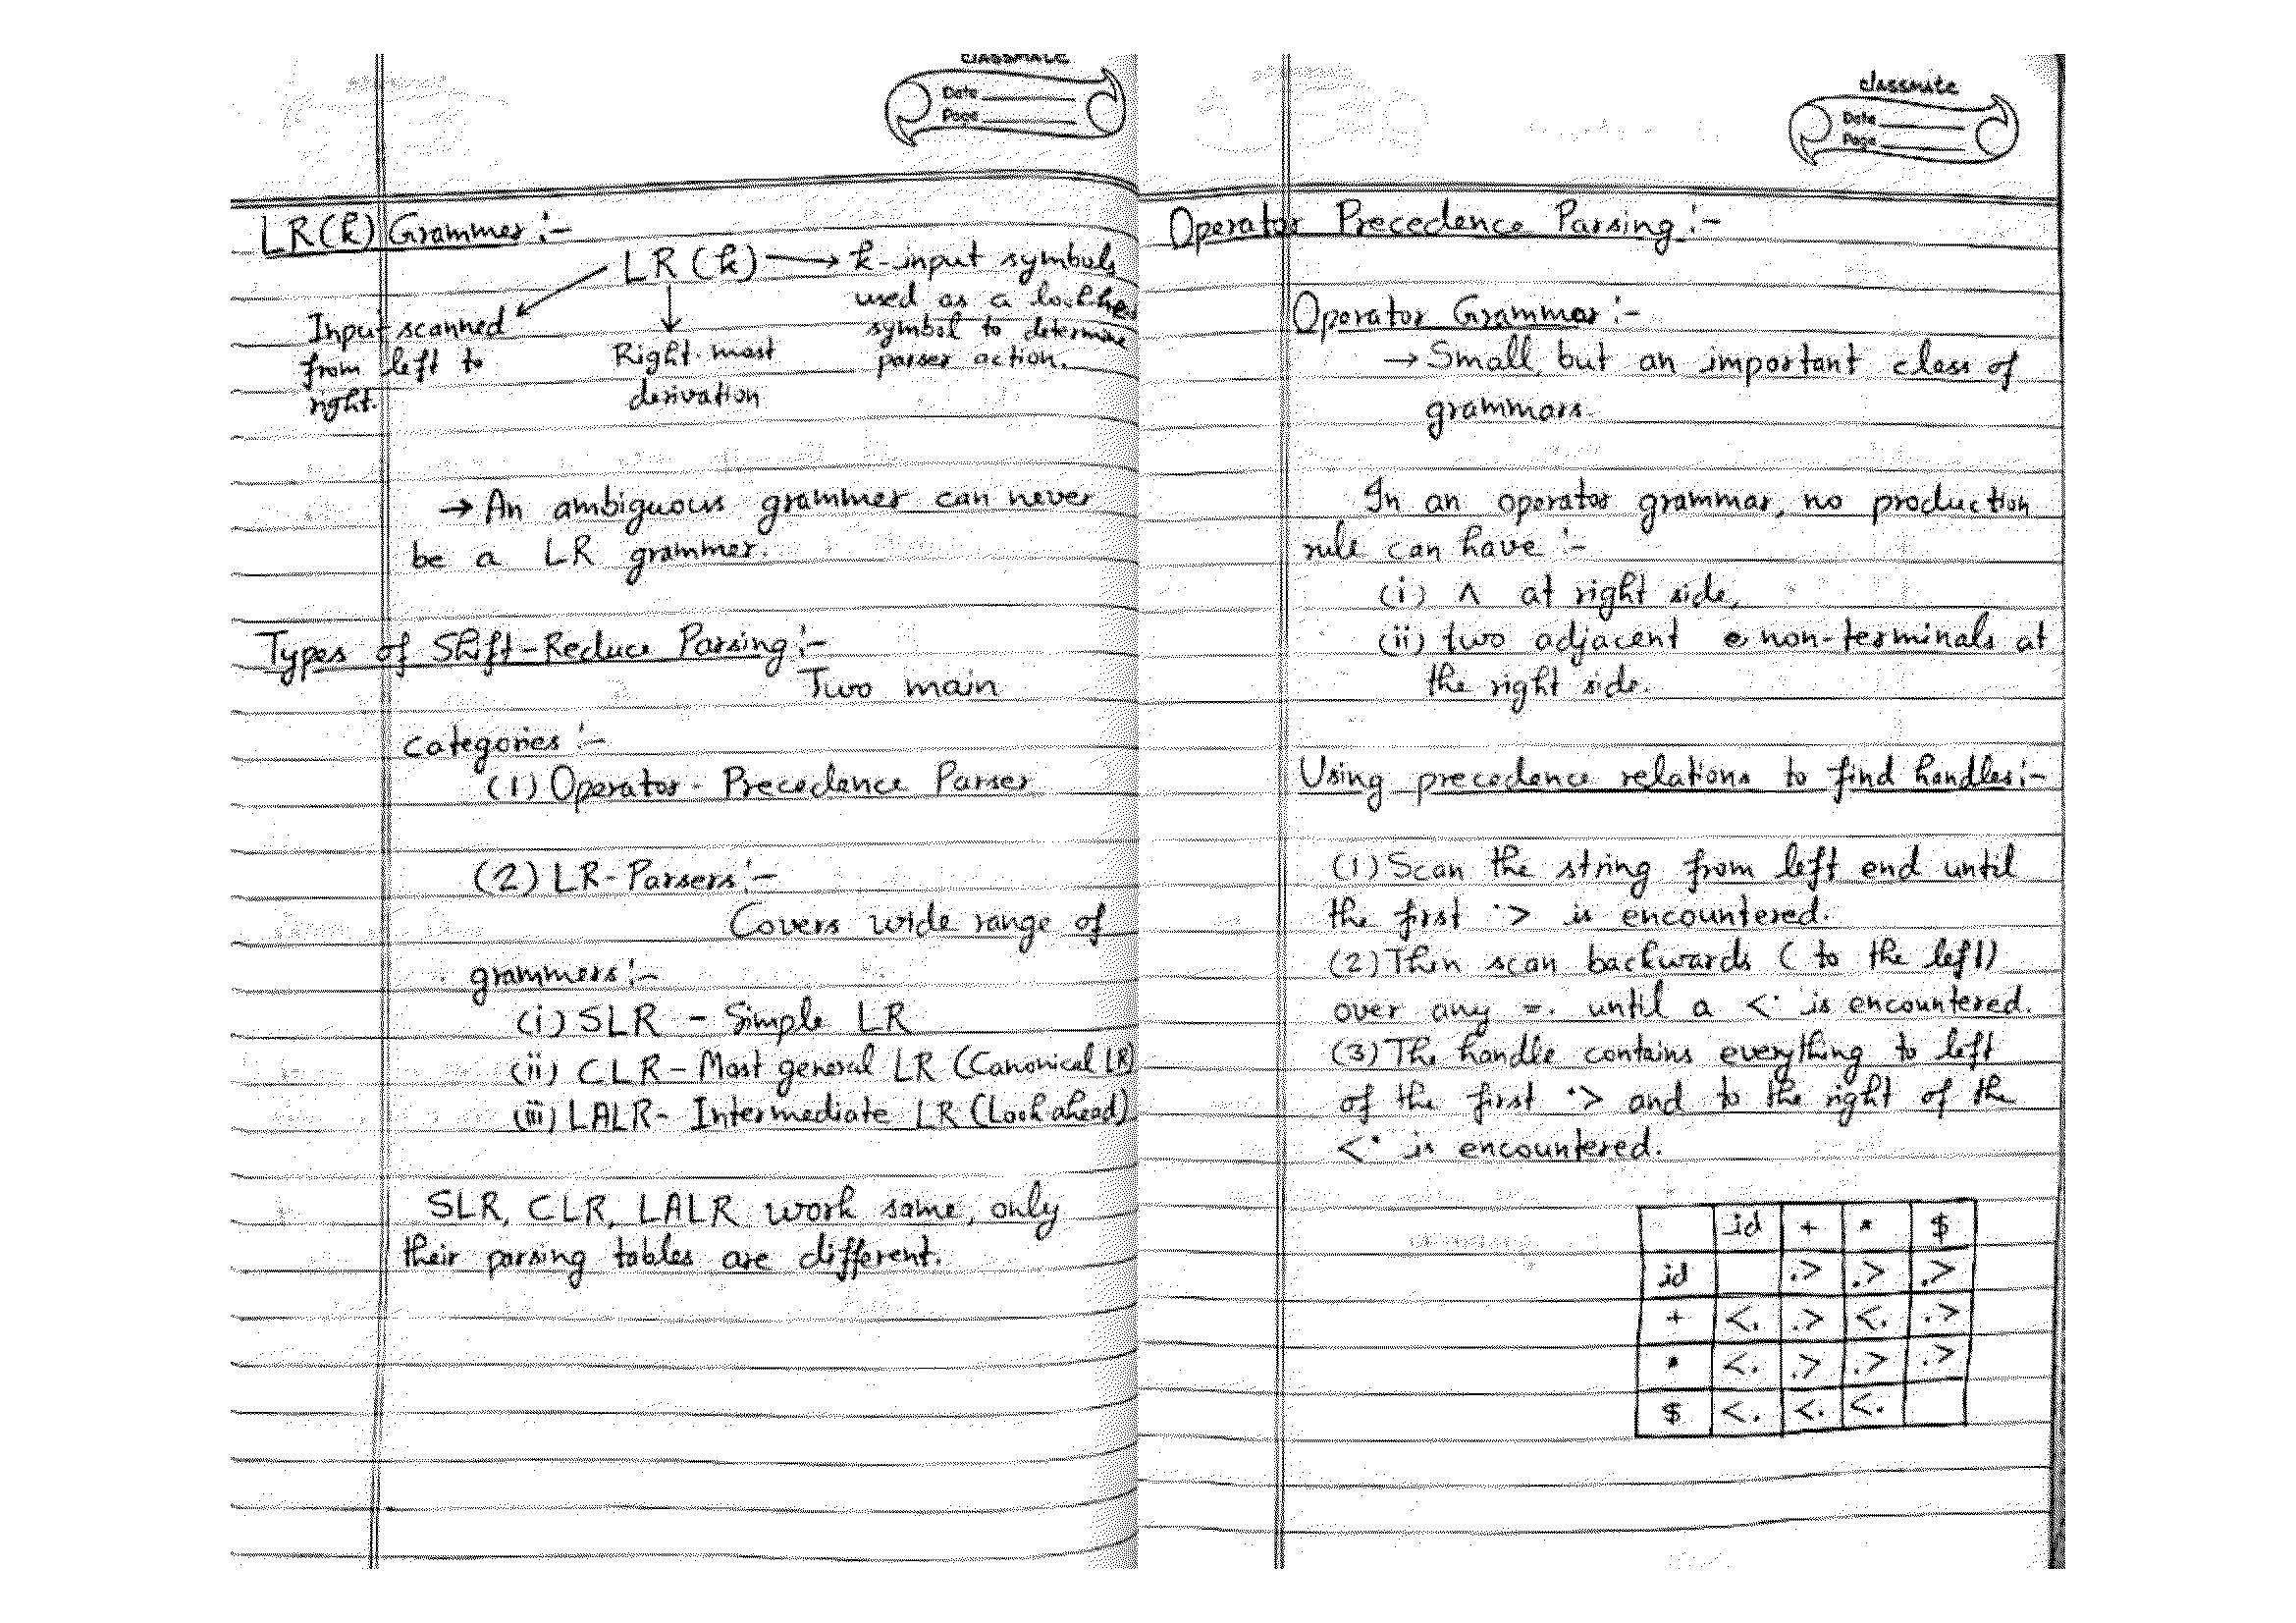 classmate
Date
Page
LR(k) Grammer :-
LR (k) → k-input symbols
used as a lookhea
symbol to determine
parser action.
Input scanned
from left to
right.
Right-most
derivation
→ An ambiguous grammer can never
be a LR grammer.
Types of Shift-Reduce Parsing :-
Two main
categories :-
(1) Operator - Precedence Parser
(2) LR-Parsers :-
Covers wide range of
grammers :-
(i) SLR - Simple LR
(ii) CLR - Most general LR (Canonical LR)
(iii) LALR - Intermediate LR (Look ahead)
SLR, CLR, LALR work same, only
their parsing tables are different.
classmate
Date
Page
Operator Precedence Parsing :-
Operator Grammar :-
→ Small, but an important class of
grammars.
In an operator grammar, no production
rule can have :-
(i) ʌ at right side,
(ii) two adjacent non-terminals at
the right side.
Using precedence relations to find handles :-
(1) Scan the string from left end until
the first ·> is encountered.
(2) Then scan backwards ( to the left)
over any =. until a <· is encountered.
(3) The handle contains everything to left
of the first ·> and to the right of the
<· is encountered.
id + * $
id .> .> .>
+ <. .> <. .>
* <. .> .> .>
$ <. <. <.